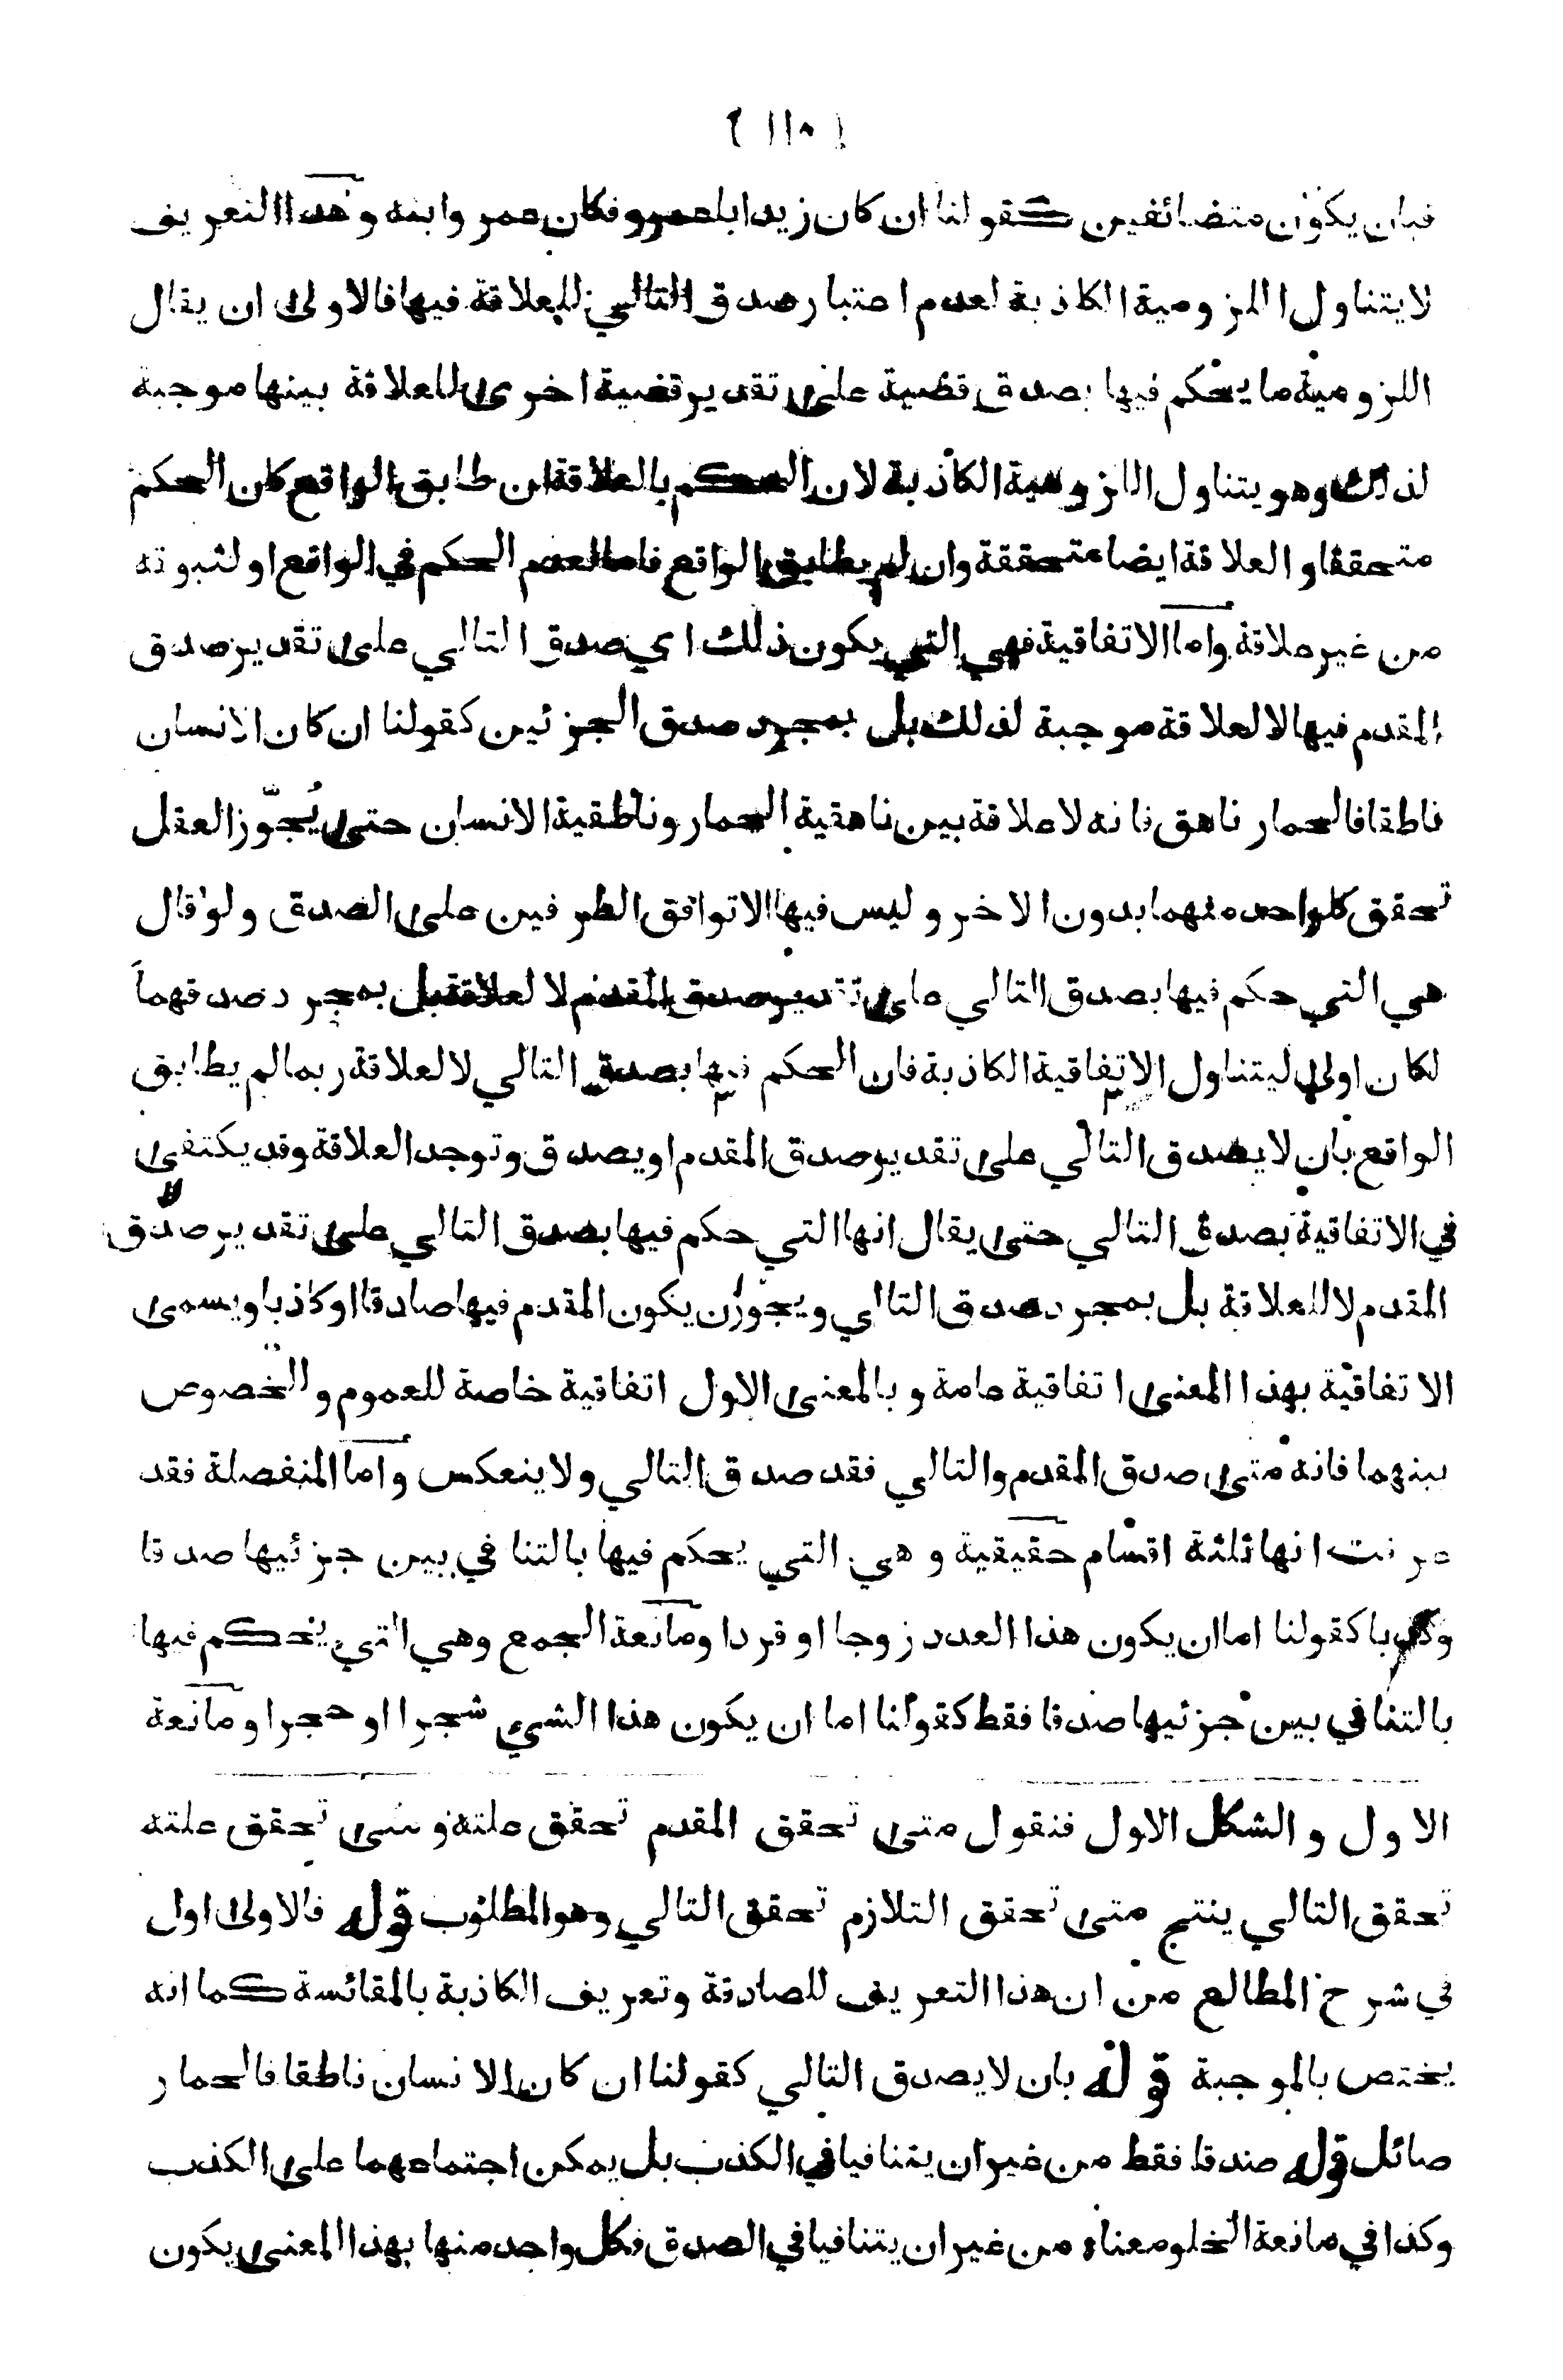 ( ١١٥ )
فبان يكون متضائفين كقولنا ان كان زيد ابا عمرو فكان عمرو ابنه وهذا التعريف
لا يتناول اللزومية الكاذبة لعدم اعتبار صدق التالي للعلاقة فيها فالاولى ان يقال
اللزومية ما يحكم فيها بصدق قضية على تقدير قضية اخرى للعلاقة بينها موجبة
لذلك وهو يتناول اللزومية الكاذبة لان الحكم بالعلاقة ان طابق الواقع كان الحكم
متحققا و العلاقة ايضا متحققة وان لم يطابق الواقع فاما لعدم الحكم في الواقع او لثبوته
من غير علاقة واما الاتفاقية فهي التي يكون ذلك اي صدق التالي على تقدير صدق
المقدم فيها لا لعلاقة موجبة لذلك بل بمجرد صدق الجزئين كقولنا ان كان الانسان
ناطقا فالحمار ناهق فانه لا علاقة بين ناهقية الحمار وناطقية الانسان حتى يُجوّز العقل
تحقق كل واحد منهما بدون الاخر و ليس فيها الا توافق الطرفين على الصدق ولو قال
هي التي حكم فيها بصدق التالي على تقدير صدق المقدم لا لعلاقة بل بمجرد صدقهما
لكان اولى ليتناول الاتفاقية الكاذبة فان الحكم فيها بصدق التالي لا لعلاقة ربما لم يطابق
الواقع بان لا يصدق التالي على تقدير صدق المقدم او يصدق وتوجد العلاقة وقد يكتفى
في الاتفاقية بصدق التالي حتى يقال انها التي حكم فيها بصدق التالي على تقدير صدق
المقدم لا للعلاقة بل بمجرد صدق التالي ويجوز ان يكون المقدم فيها صادقا او كاذبا ويسمى
الاتفاقية بهذا المعنى اتفاقية عامة و بالمعنى الاول اتفاقية خاصة للعموم والخصوص
بينهما فانه متى صدق المقدم والتالي فقد صدق التالي ولا ينعكس واما المنفصلة فقد
عرفت انها ثلثة اقسام حقيقية و هي التي يحكم فيها بالتنافي بين جزئيها صدقا
وكذبا كقولنا اما ان يكون هذا العدد زوجا او فردا ومانعة الجمع وهي التي يحكم فيها
بالتنافي بين جزئيها صدقا فقط كقولنا اما ان يكون هذا الشيء شجرا او حجرا ومانعة
الاول و الشكل الاول فنقول متى تحقق المقدم تحقق علته و متى تحقق علته
تحقق التالي ينتج متى تحقق التلازم تحقق التالي وهو المطلوب قوله فالاولى اول
في شرح المطالع من ان هذا التعريف للصادقة وتعريف الكاذبة بالمقائسة كما انه
يختص بالموجبة قوله بان لا يصدق التالي كقولنا ان كان الانسان ناطقا فالحمار
صائل قوله صدقا فقط من غير ان يتنافيا في الكذب بل يمكن اجتماعهما على الكذب
وكذا في مانعة الخلو معناه من غير ان يتنافيا في الصدق فكل واحد منها بهذا المعنى يكون